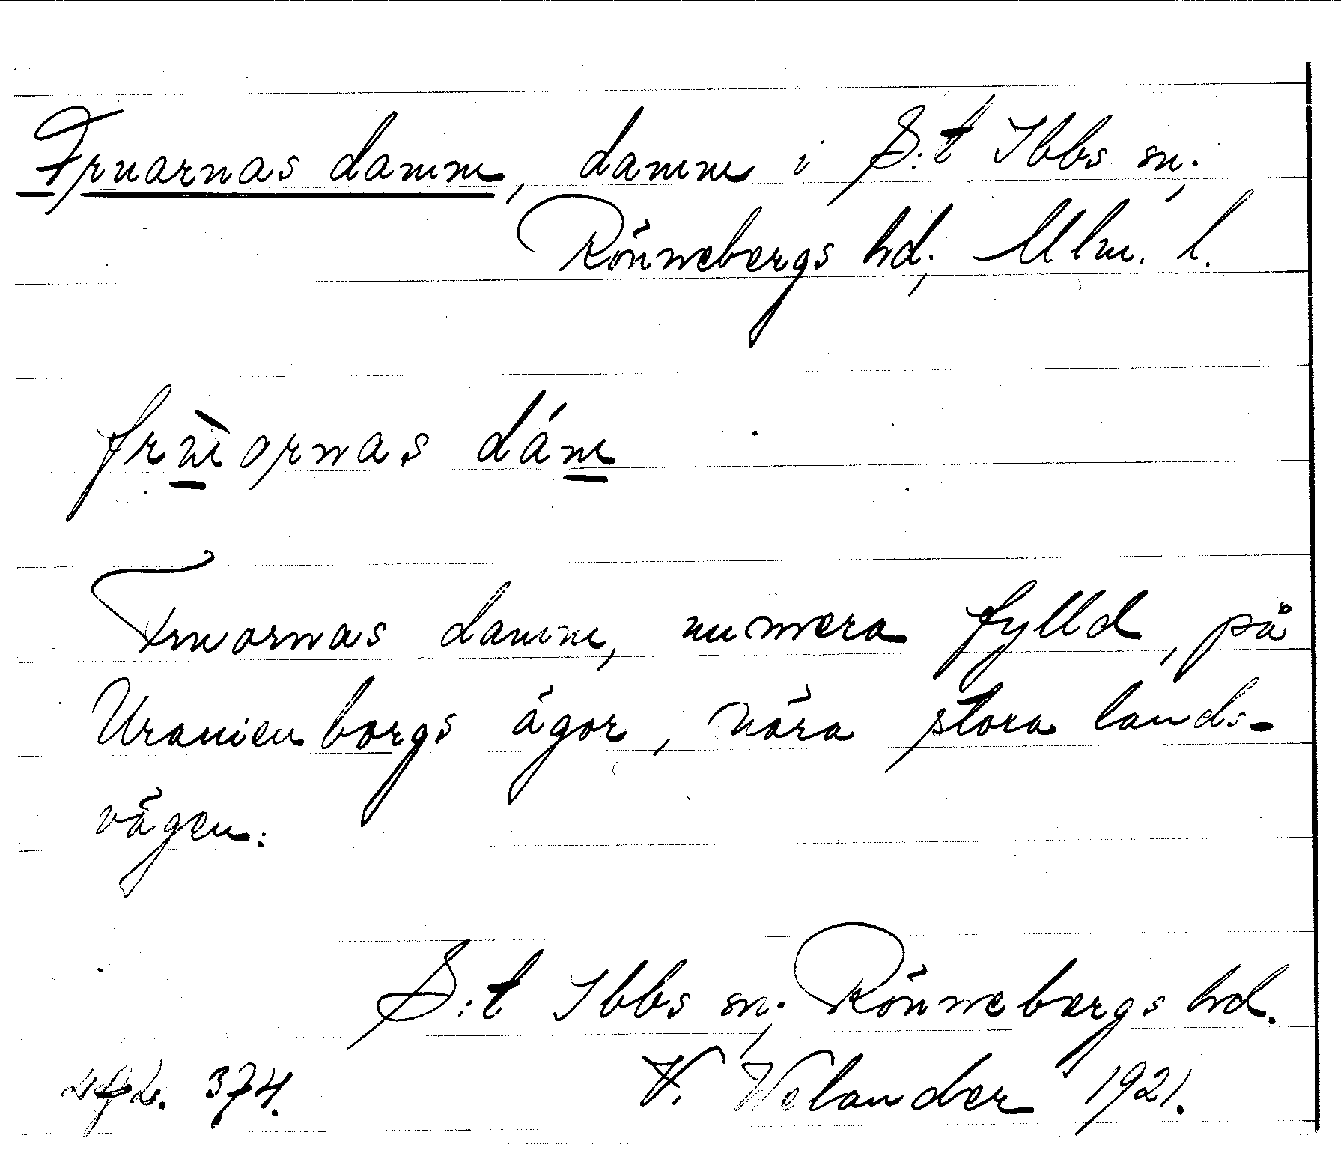 Fruarnas damm, damm i S:t Ibbs sn;
Rönnebergs hd; Mlm. l.
frùornas dám
Fruarnas damm, numera fylld, på
Uranienborgs ägor, nära stora lands-
vägen.
S:t Ibbs sn; Rönnebergs hd.
374. V. Welander 1921.